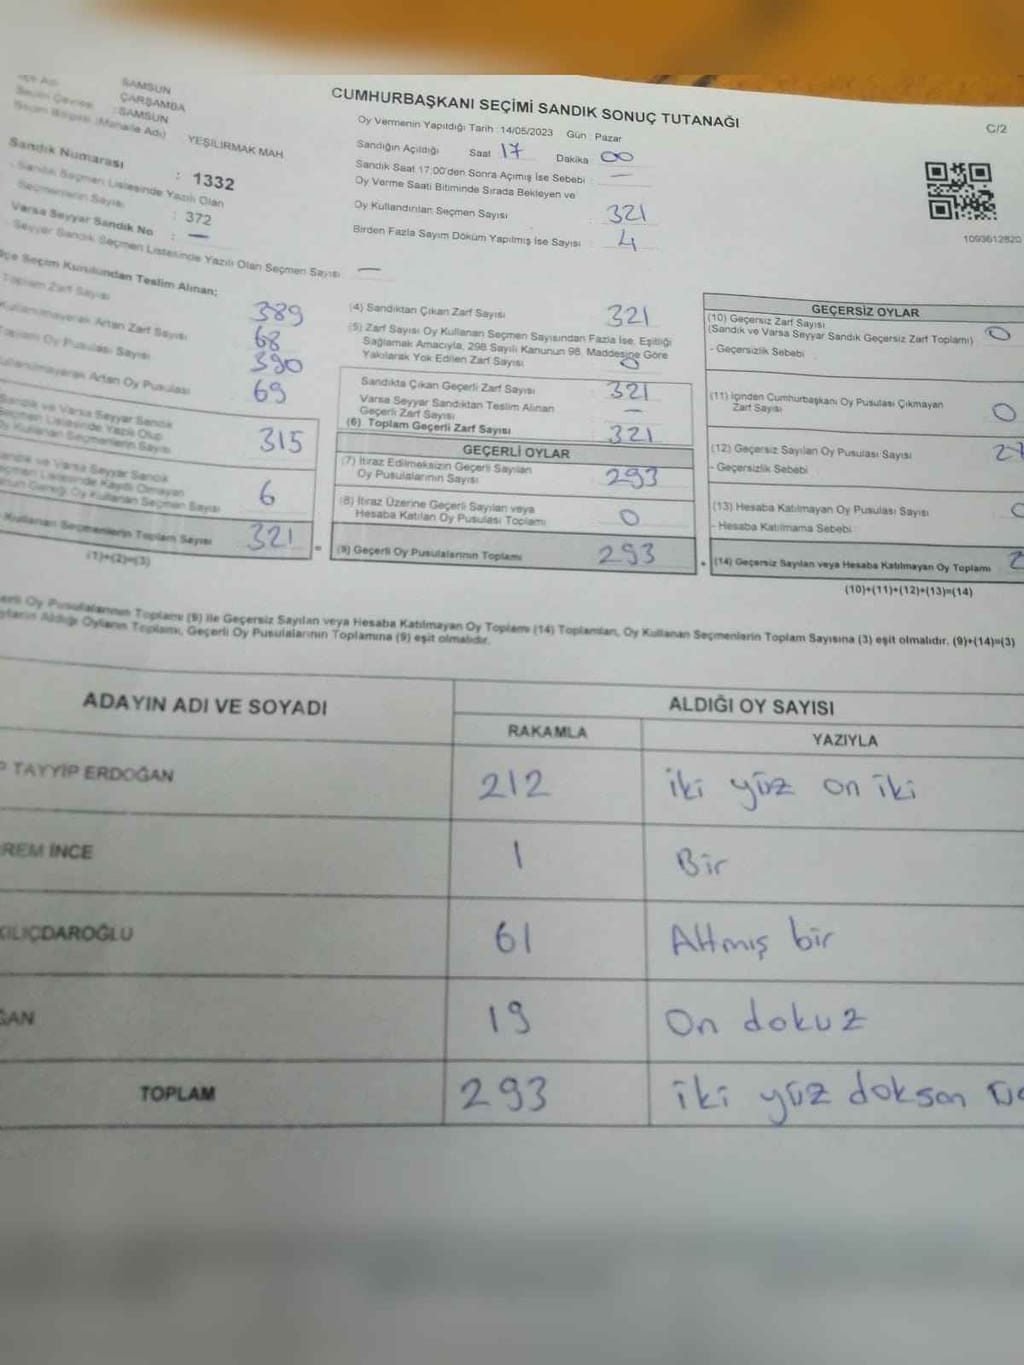 SAMSUN
ÇARŞAMBA
SAMSUN
Seçim Bölgesi (Mahalle Adı) : YEŞİLIRMAK MAH
Sandık Numarası : 1332
Sandık Seçmen Listesinde Yazılı Olan
Seçmenlerin Sayısı : 372
Varsa Seyyar Sandık No : —
Seyyar Sandık Seçmen Listesinde Yazılı Olan Seçmen Sayısı —
CUMHURBAŞKANI SEÇİMİ SANDIK SONUÇ TUTANAĞI
C/2
Oy Vermenin Yapıldığı Tarih : 14/05/2023 Gün : Pazar
Sandığın Açıldığı Saat 17 Dakika 00
Sandık Saat 17:00'den Sonra Açımış İse Sebebi : —
Oy Verme Saati Bitiminde Sırada Bekleyen ve
Oy Kullandırılan Seçmen Sayısı : 321
Birden Fazla Sayım Döküm Yapılmış İse Sayısı : 4
1093612820
İlçe Seçim Kurulundan Teslim Alınan;
Toplam Zarf Sayısı 389
Kullanılmayarak Artan Zarf Sayısı 68
Toplam Oy Pusulası Sayısı 390
Kullanılmayarak Artan Oy Pusulası 69
Sandık ve Varsa Seyyar Sandık
Seçmen Listesinde Yazılı Olup
Oy Kullanan Seçmenlerin Sayısı 315
Sandık ve Varsa Seyyar Sandık
Seçmen Listesinde Kaydı Olmayan
Kanun Gereği Oy Kullanan Seçmen Sayısı 6
Kullanan Seçmenlerin Toplam Sayısı 321 =
(1)+(2)=(3)
(4) Sandıktan Çıkan Zarf Sayısı 321
(5) Zarf Sayısı Oy Kullanan Seçmen Sayısından Fazla İse, Eşitliği
Sağlamak Amacıyla, 298 Sayılı Kanunun 98. Maddesine Göre
Yakılarak Yok Edilen Zarf Sayısı 0
Sandıkta Çıkan Geçerli Zarf Sayısı 321
Varsa Seyyar Sandıktan Teslim Alınan
Geçerli Zarf Sayısı —
(6) Toplam Geçerli Zarf Sayısı 321
GEÇERLİ OYLAR
(7) İtiraz Edilmeksizin Geçerli Sayılan
Oy Pusulalarının Sayısı 293
(8) İtiraz Üzerine Geçerli Sayılan veya
Hesaba Katılan Oy Pusulası Toplamı 0
(9) Geçerli Oy Pusulalarının Toplamı 293 +
GEÇERSİZ OYLAR
(10) Geçersiz Zarf Sayısı
(Sandık ve Varsa Seyyar Sandık Geçersiz Zarf Toplamı) 0
- Geçersizlik Sebebi
(11) İçinden Cumhurbaşkanı Oy Pusulası Çıkmayan
Zarf Sayısı 0
(12) Geçersiz Sayılan Oy Pusulası Sayısı
- Geçersizlik Sebebi
(13) Hesaba Katılmayan Oy Pusulası Sayısı
- Hesaba Katılmama Sebebi
(14) Geçersiz Sayılan veya Hesaba Katılmayan Oy Toplamı
(10)+(11)+(12)+(13)=(14)
Oy Pusulalarının Toplamı (9) ile Geçersiz Sayılan veya Hesaba Katılmayan Oy Toplamı (14) Toplamları, Oy Kullanan Seçmenlerin Toplam Sayısına (3) eşit olmalıdır. (9)+(14)=(3)
Aldığı Oyların Toplamı, Geçerli Oy Pusulalarının Toplamına (9) eşit olmalıdır.
ADAYIN ADI VE SOYADI
ALDIĞI OY SAYISI
RAKAMLA YAZIYLA
P TAYYİP ERDOĞAN 212 iki yüz on iki
REM İNCE 1 Bir
KILIÇDAROĞLU 61 Altmış bir
ĞAN 19 On dokuz
TOPLAM 293 iki yüz doksan